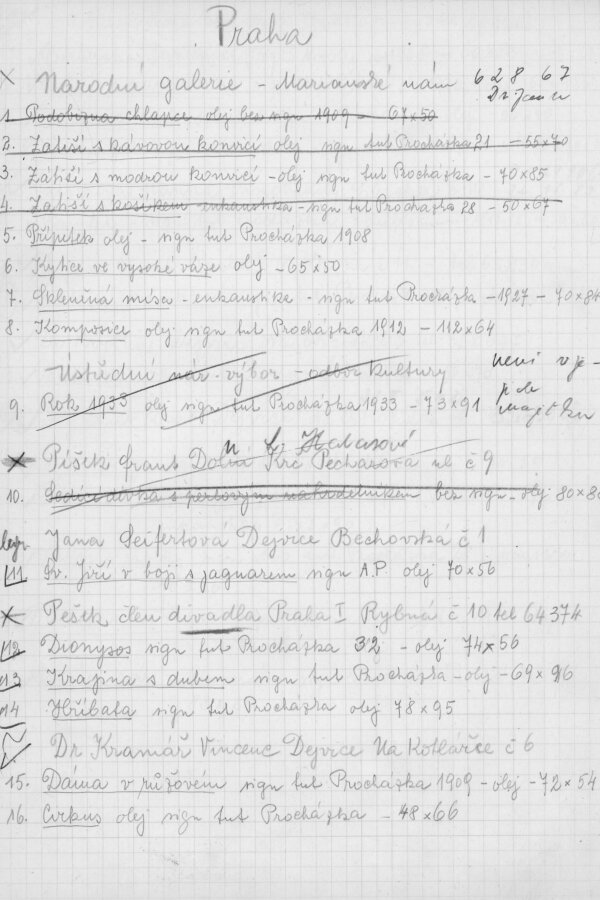 Praha
× Národní galerie - Marianské nám 628 67
1. Podobizna chlapce olej bez sign 1909 - 67×50
2. Zátiší s kávovou konvicí olej sign tut Procházka 21 - 55×70
3. Zátiší s modrou konvicí - olej sign tut Procházka - 70×85
4. Zátiší s košíkem - enkaustika - sign tut Procházka 28 - 50×67
5. Přípitek olej - sign tut Procházka 1908
6. Kytice ve vysoké váze olej - 65×50
7. Skleněná mísa - enkaustika - sign tut Procházka - 1927 - 70×84
8. Komposice olej sign tut Procházka 1912 - 112×64
Ústřední nár. výbor - odbor kultury
není v je-
9. Rok 1933 olej sign tut Procházka 1933 - 73×91
majetku
u Halasové
× Píšek Frant Dolní Krč Pechazová ul č 9
10. Sedící dívka s perlovým náhrdelníkem bez sign - olej 80×8
Jana Seifertová Dejvice Bechovská č 1
11. Sv. Jiří v boji s jaguarem sign A.P. olej 70×56
× Pešek člen divadla Praha I Rybná č 10 tel 64374
12 Dionysos sign tut Procházka 32 - olej 74×56
13 Krajina s dubem sign tut Procházka - olej - 69×96
14 Hříbata sign tut Procházka olej 78×95
Dr Kramář Vincenc Dejvice Na Kotlářce č 6
15. Dáma v růžovém sign tut Procházka 1909 - olej - 72×54
16. Cirkus olej sign tut Procházka - 48×66